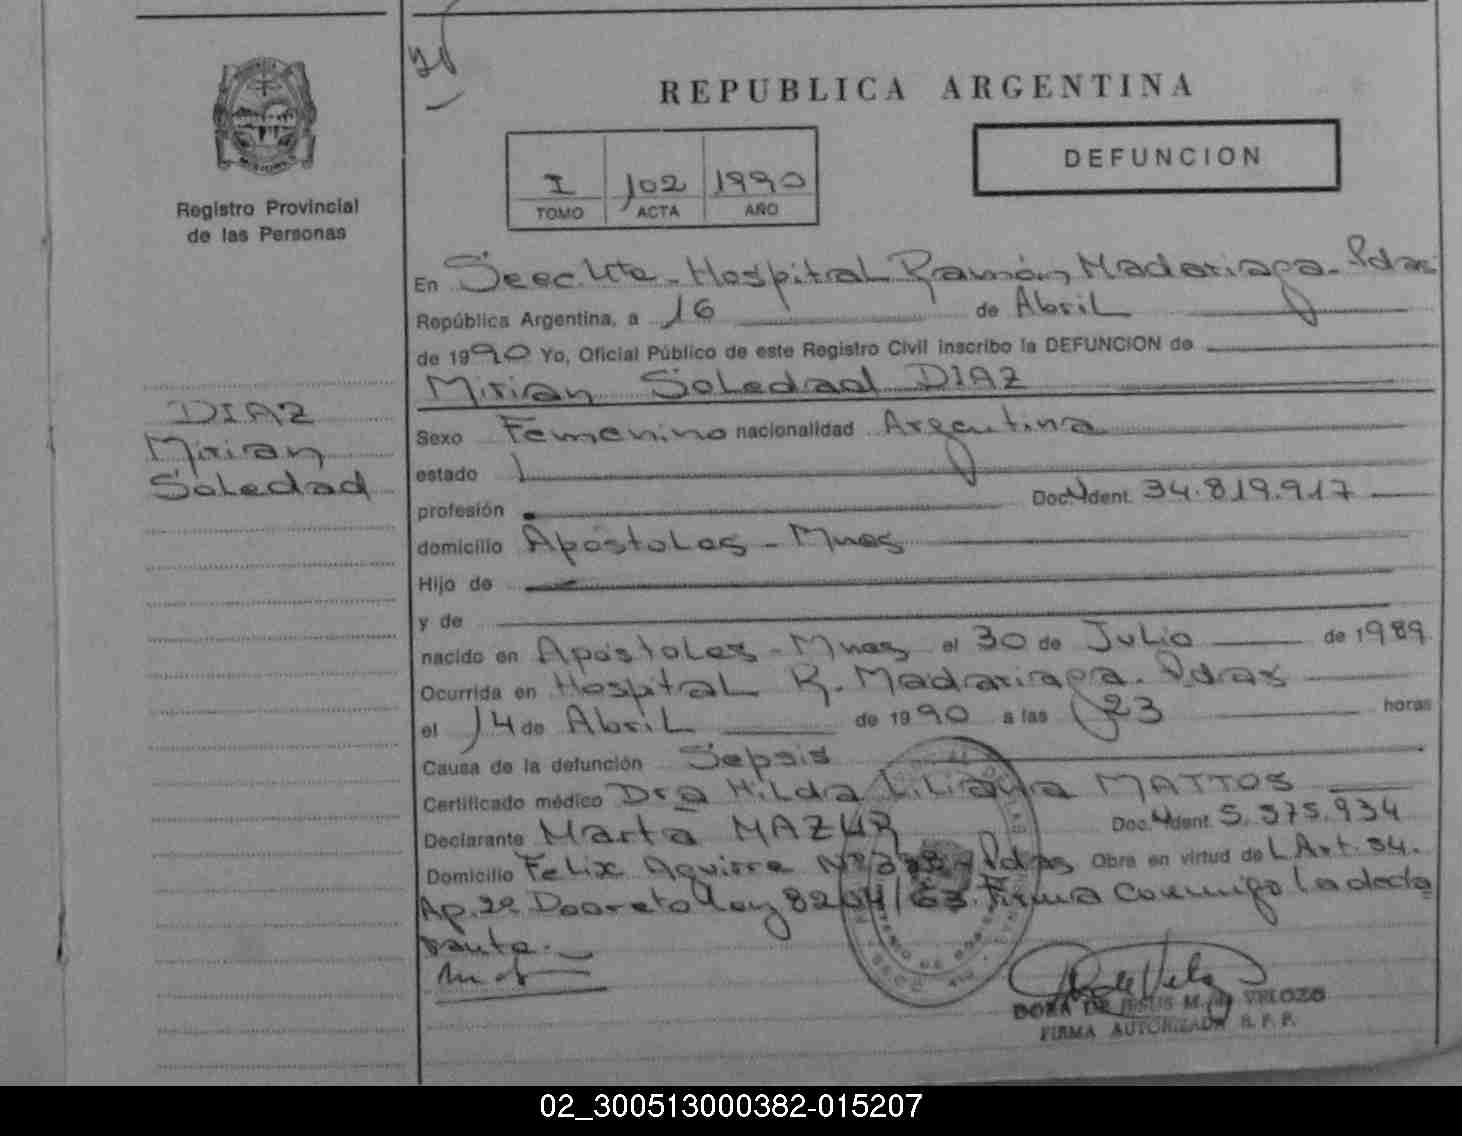 REPUBLICA ARGENTINA
DEFUNCION
I 102 1990
TOMO ACTA AÑO
Registro Provincial
de las Personas
DIAZ
Mirian
Soledad
En Secc. Hospital Ramón Madariaga - Pdas
República Argentina, a 16 de Abril
de 1990 Yo, Oficial Público de este Registro Civil inscribo la DEFUNCION de
Mirian Soledad DIAZ
Sexo Femenino nacionalidad Argentina
estado
profesión Doc. Ident. 34.819.917
domicilio Apóstoles - Mnes
Hijo de
y de
nacido en Apóstoles - Mnes el 30 de Julio de 1989
Ocurrida en Hospital R. Madariaga. Pdas
el 14 de Abril de 1990 a las 23 horas
Causa de la defunción Sepsis
Certificado médico Dra Hilda Liliana MATTOS
Declarante Marta MAZUR Doc. Ident. 5.575.934
Domicilio Felix Aguirre Pdas Obra en virtud de L Art. 34.
Ap. 2º Decreto Ley 8204/63. Firma conmigo la decla
rante.
DORA DE JESUS M. de VELOZO
FIRMA AUTORIZADA R. P. P.
02_300513000382-015207